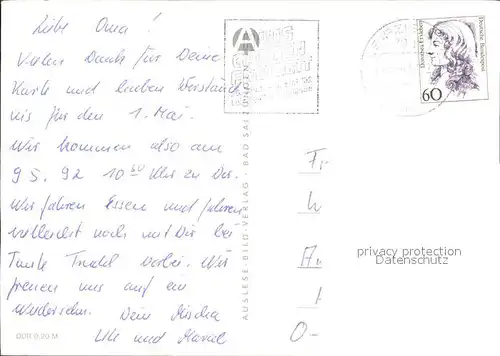 Liebe Oma!
Vielen Dank für Deine
Karte und lieben Verständ
nis für den 1. Mai.
Wir kommen also am
9 5. 92 10 30 Uhr zu Dir.
Wir fahren Essen und fahren
vielleicht noch mit Dir bei
Tante Trudl vorbei. Wir
freuen uns auf ein
Wiedersehn. Dein Mischa
Ute und Marcel
DDR 0,20 M
AUSLESE-BILD-VERLAG · BAD SALZUNGEN
Dorothea Erxleben
Deutsche Bundespost
60
Fr
An
O-
privacy protection
Datenschutz